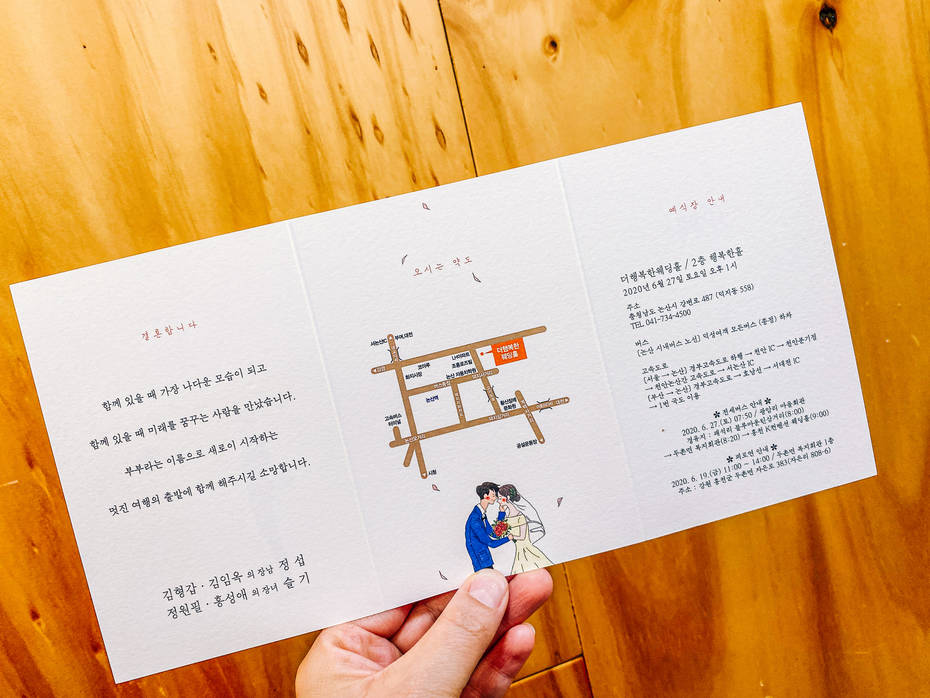 결혼합니다
함께 있을 때 가장 나다운 모습이 되고
함께 있을 때 미래를 꿈꾸는 사람을 만났습니다.
부부라는 이름으로 새로이 시작하는
멋진 여행의 출발에 함께 해주시길 소망합니다.
김형갑 · 김임옥 의 장남 정 섭
정원필 · 홍성애 의 장녀 슬 기
오시는 약도
서논산IC
부여,대전
강경
코아루
화지시장
나이아파트
논산 자동차학원
더행복한
웨딩홀
버스통합
논산역
고속버스
터미널
등산장례
문화원
공설운동장
시청
예식장 안내
더행복한웨딩홀 / 2층 행복한홀
2020년 6월 27일 토요일 오후 1시
주소
충청남도 논산시 강변로 487 (덕지동 558)
TEL 041-734-4500
버스
(논산 시내버스 노선) 덕성여객 모든버스 (종점) 하차
고속도로
(서울 → 논산) 경부고속도로 하행 → 천안 IC → 천안분기점
→ 천안논산간 고속도로 → 서논산 IC
(부산 → 논산) 경부고속도로 → 호남선 → 서대전 IC
→ 1번 국도 이용
✽ 전세버스 안내 ✽
2020. 6. 27.(토) 07:50 / 괄양리 마을회관
경유지 : 폐석리 블루마운틴삼거리(8:00)
→ 두촌면 복지회관(8:20) → 홍천 K컨벤션 웨딩홀(9:00)
✽ 피로연 안내 ✽
2020. 6. 19.(금) 11:00 ~ 14:00 / 두촌면 복지회관 1층
주소 : 강원 홍천군 두촌면 자은로 383(자은리 808-6)